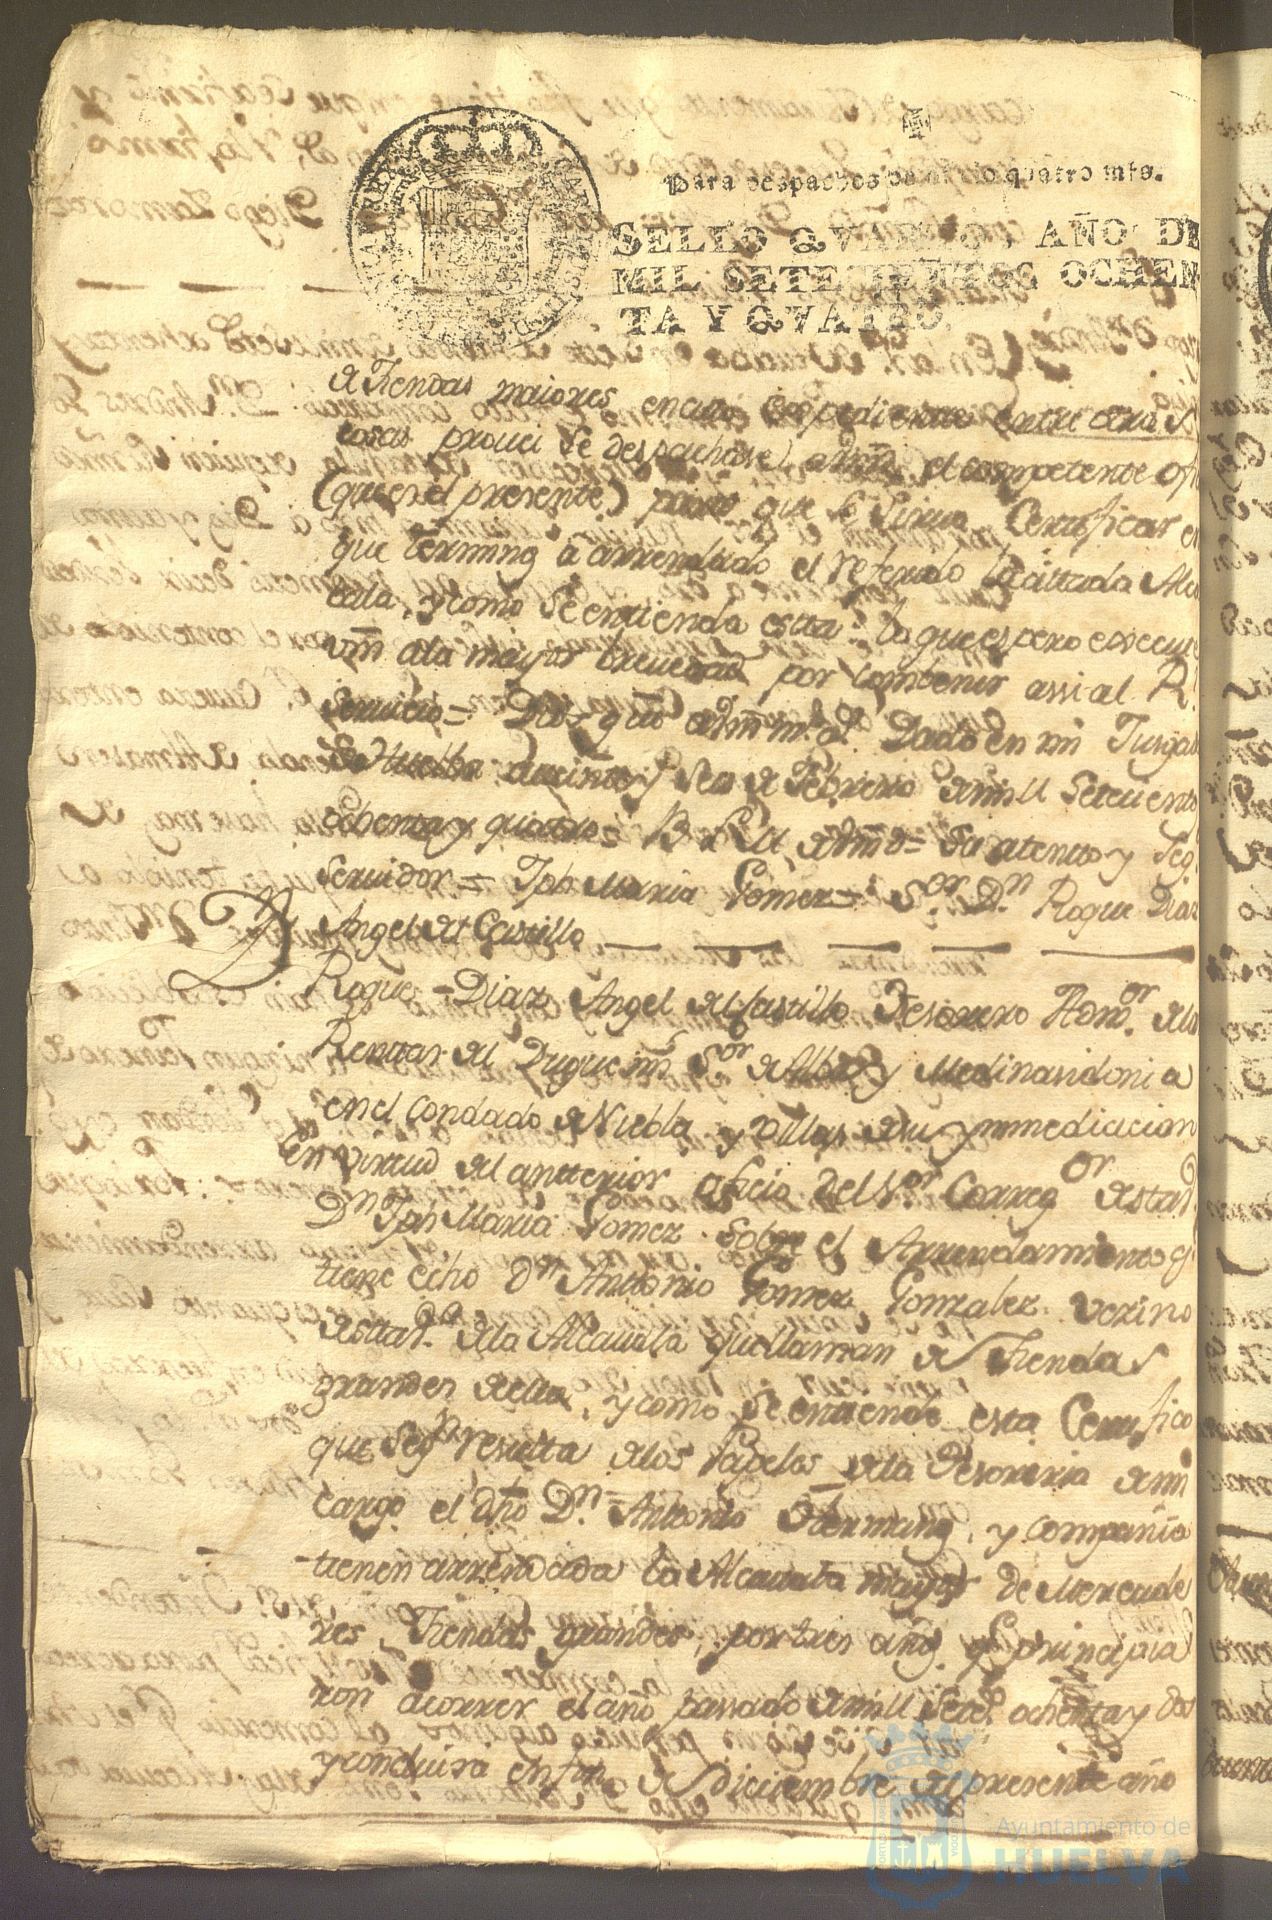 Para despachos de oficio quatro mrs.
SELLO QVARTO, AÑO DE
MIL SETECIENTOS OCHEN
TA Y QVATRO.
de Tiendas maiores en cuio expediente entre otras
cosas provei se despachase a vmd. el competente ofi
(que es el presente) para que se sirva Certificar en
que terminos à arrendado el referido la citada Alca
vala, y como se entienda esta: lo que espero execute
vm a la mayor brevedad por combenir assi al Rl.
Servicio = Dios gue a Vm ms. as. Dado en mi Jusgado
de Huelba a veinte y seis de Febrero de mill setecientos
ochenta y quatro = B L M de Vmd = Su atento y Seg.
Servidor = Jph Maria Gomez = Sor. Dn. Roque Diaz
Angel del Castillo
Dn Roque Diaz Angel del Castillo Tesorero Admor. de las
Rentas del Duque mi Sor. de Alba y Medinasidonia
en el Condado de Niebla y villas de su ynmediacion
En virtud del antterior oficio del Sor Corregor de esta va
Dn Jph Maria Gomez sobre el Arrendamiento q
tiene echo Dn Antonio Gomez Gonzalez vezino
de esta va. de la Alcavala que llaman de Tiendas
grandes de ella, y como se entiende esta Certifico
que segn resulta de los Papeles de la Tesoreria de mi
cargo el dho Dn. Antonio Germano, y compañia
tienen arrendada la Alcavala mayor de Mercade
res, Tiendas grandes, por tres años q principia
ron a correr el año passado de mill Setes. ochenta y dos
y concluira en fin de Diciembre del presente año
Ayuntamiento de
HUELVA